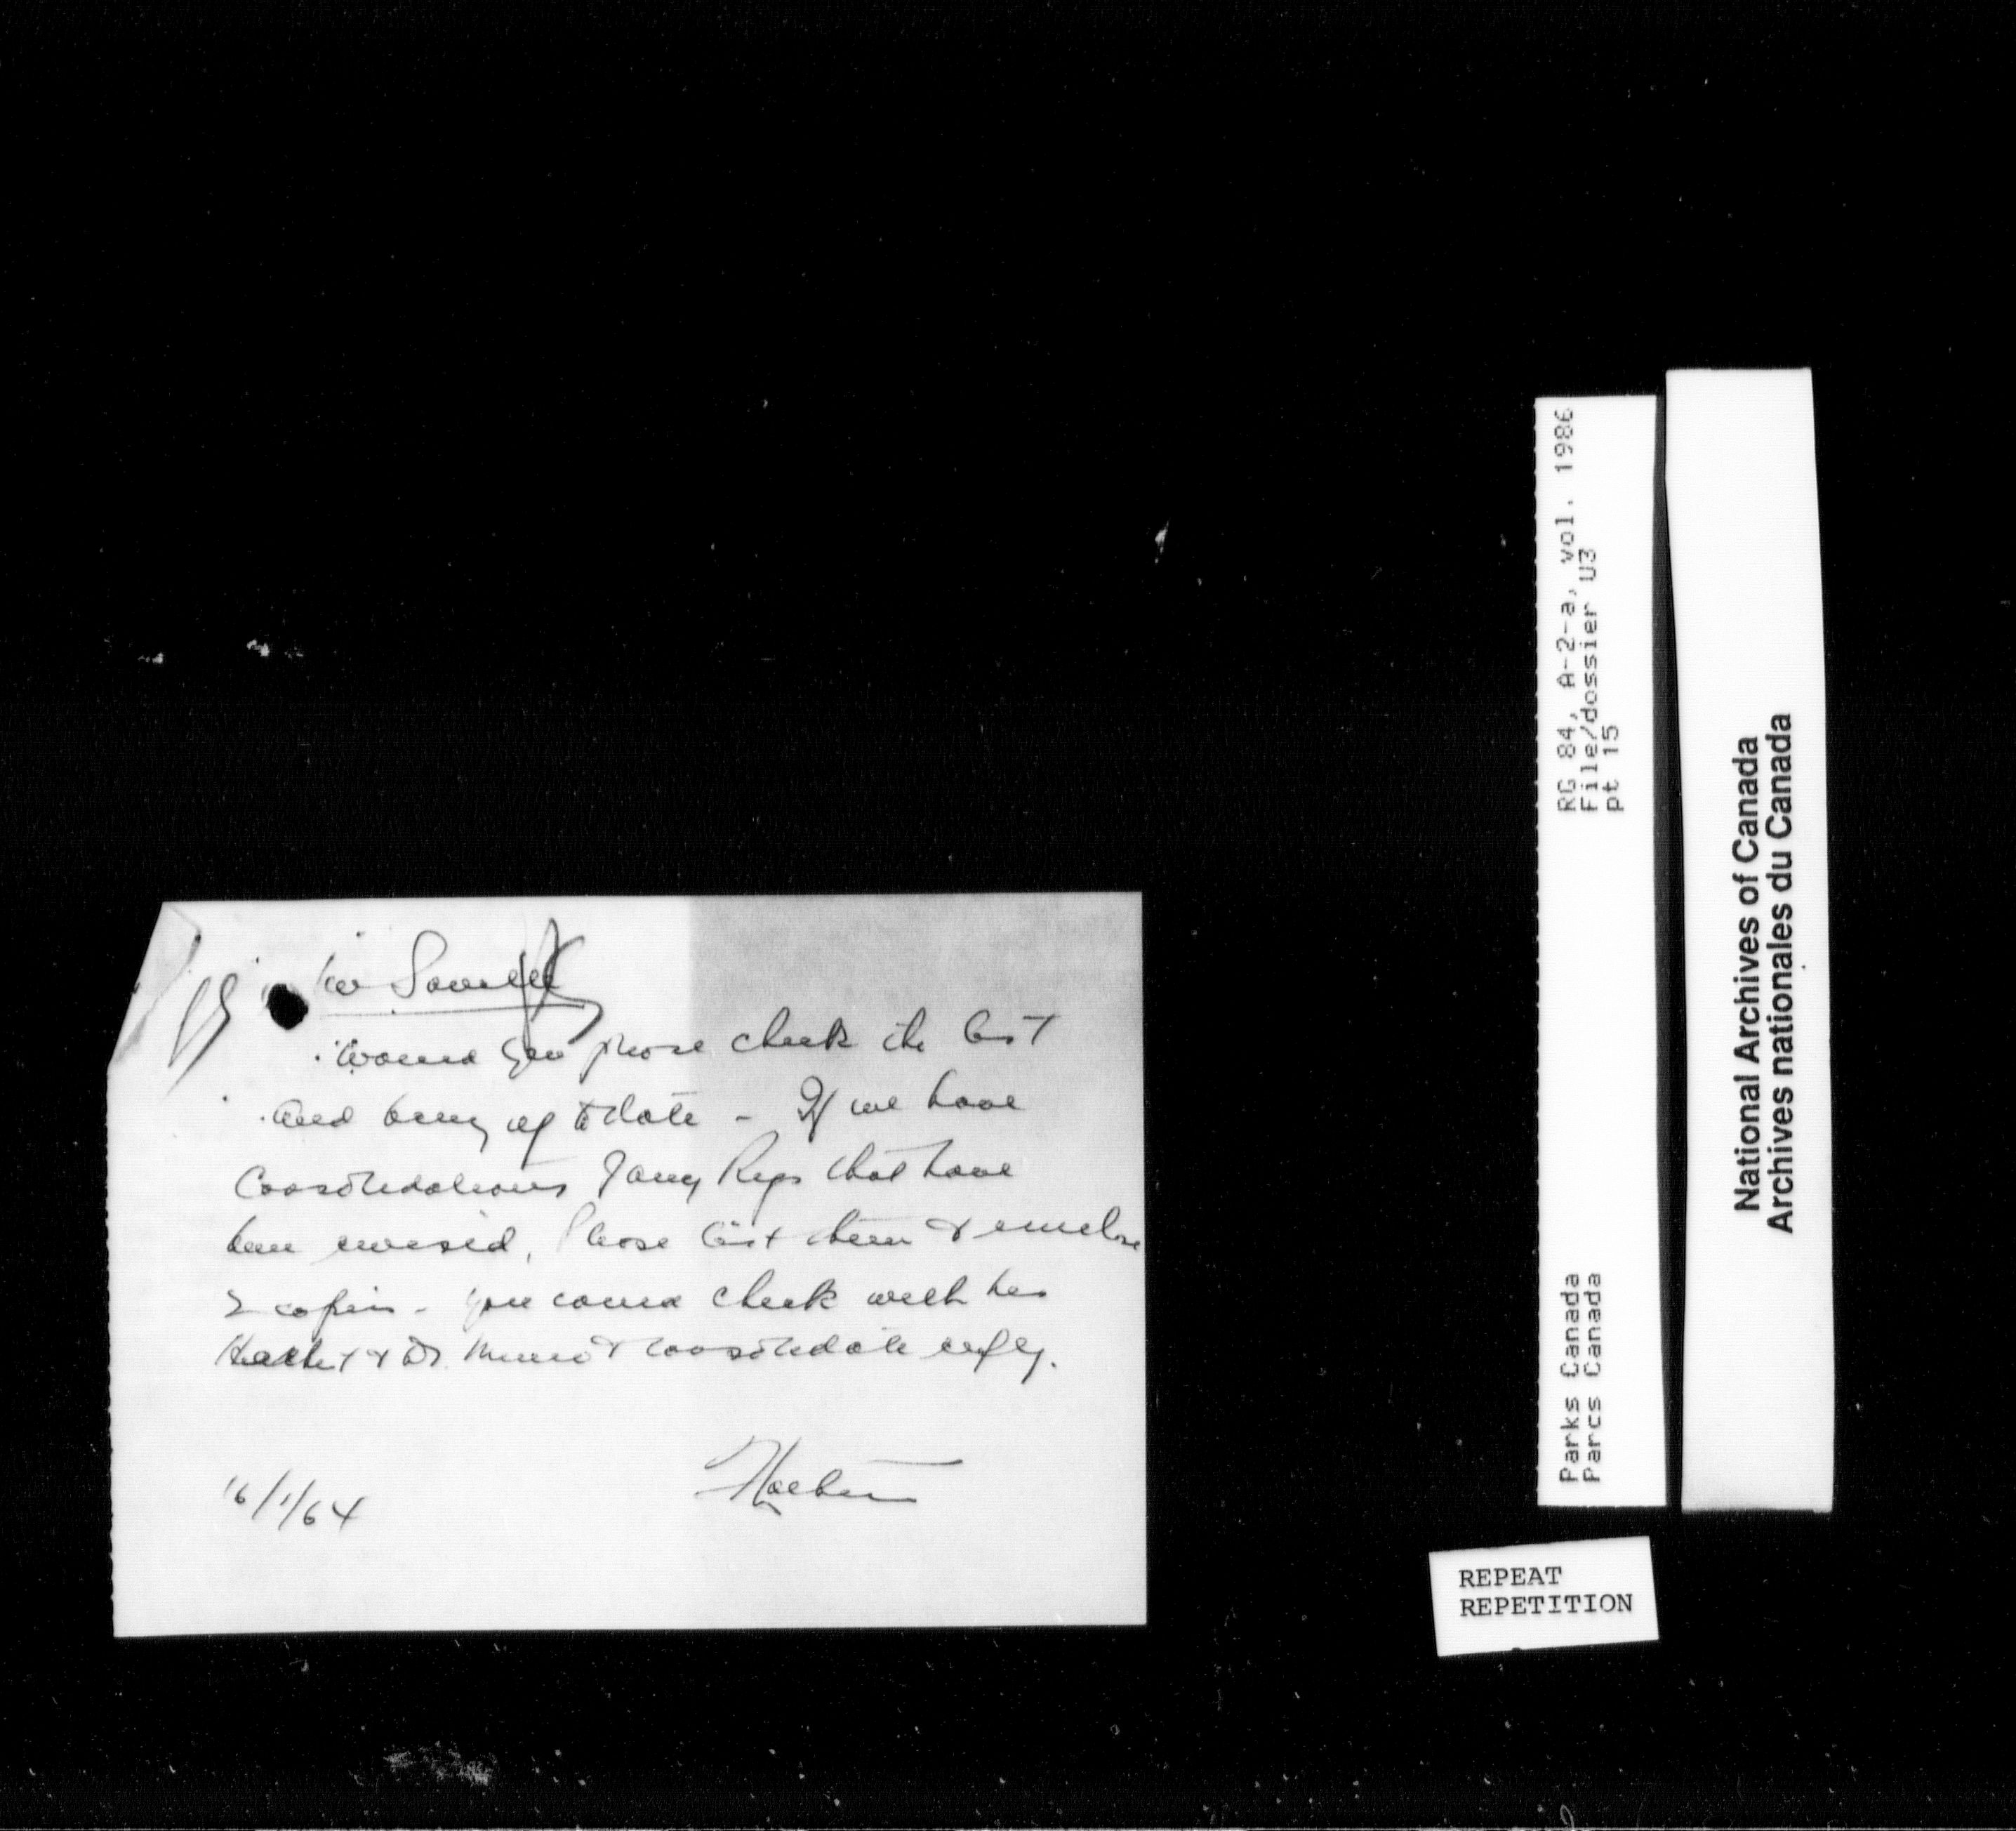 Would you please check the list
and bring up to date - If we have
Consolidations of any Regs that have
been revised, Please list them & enclose
2 copies - you could check with
& Dr. Munro & consolidate reply.
16/1/64
RG 84, A-2-a, vol. 1986
File/dossier U3
pt 15
Parks Canada
Parcs Canada
National Archives of Canada
Archives nationales du Canada
REPEAT
REPETITION